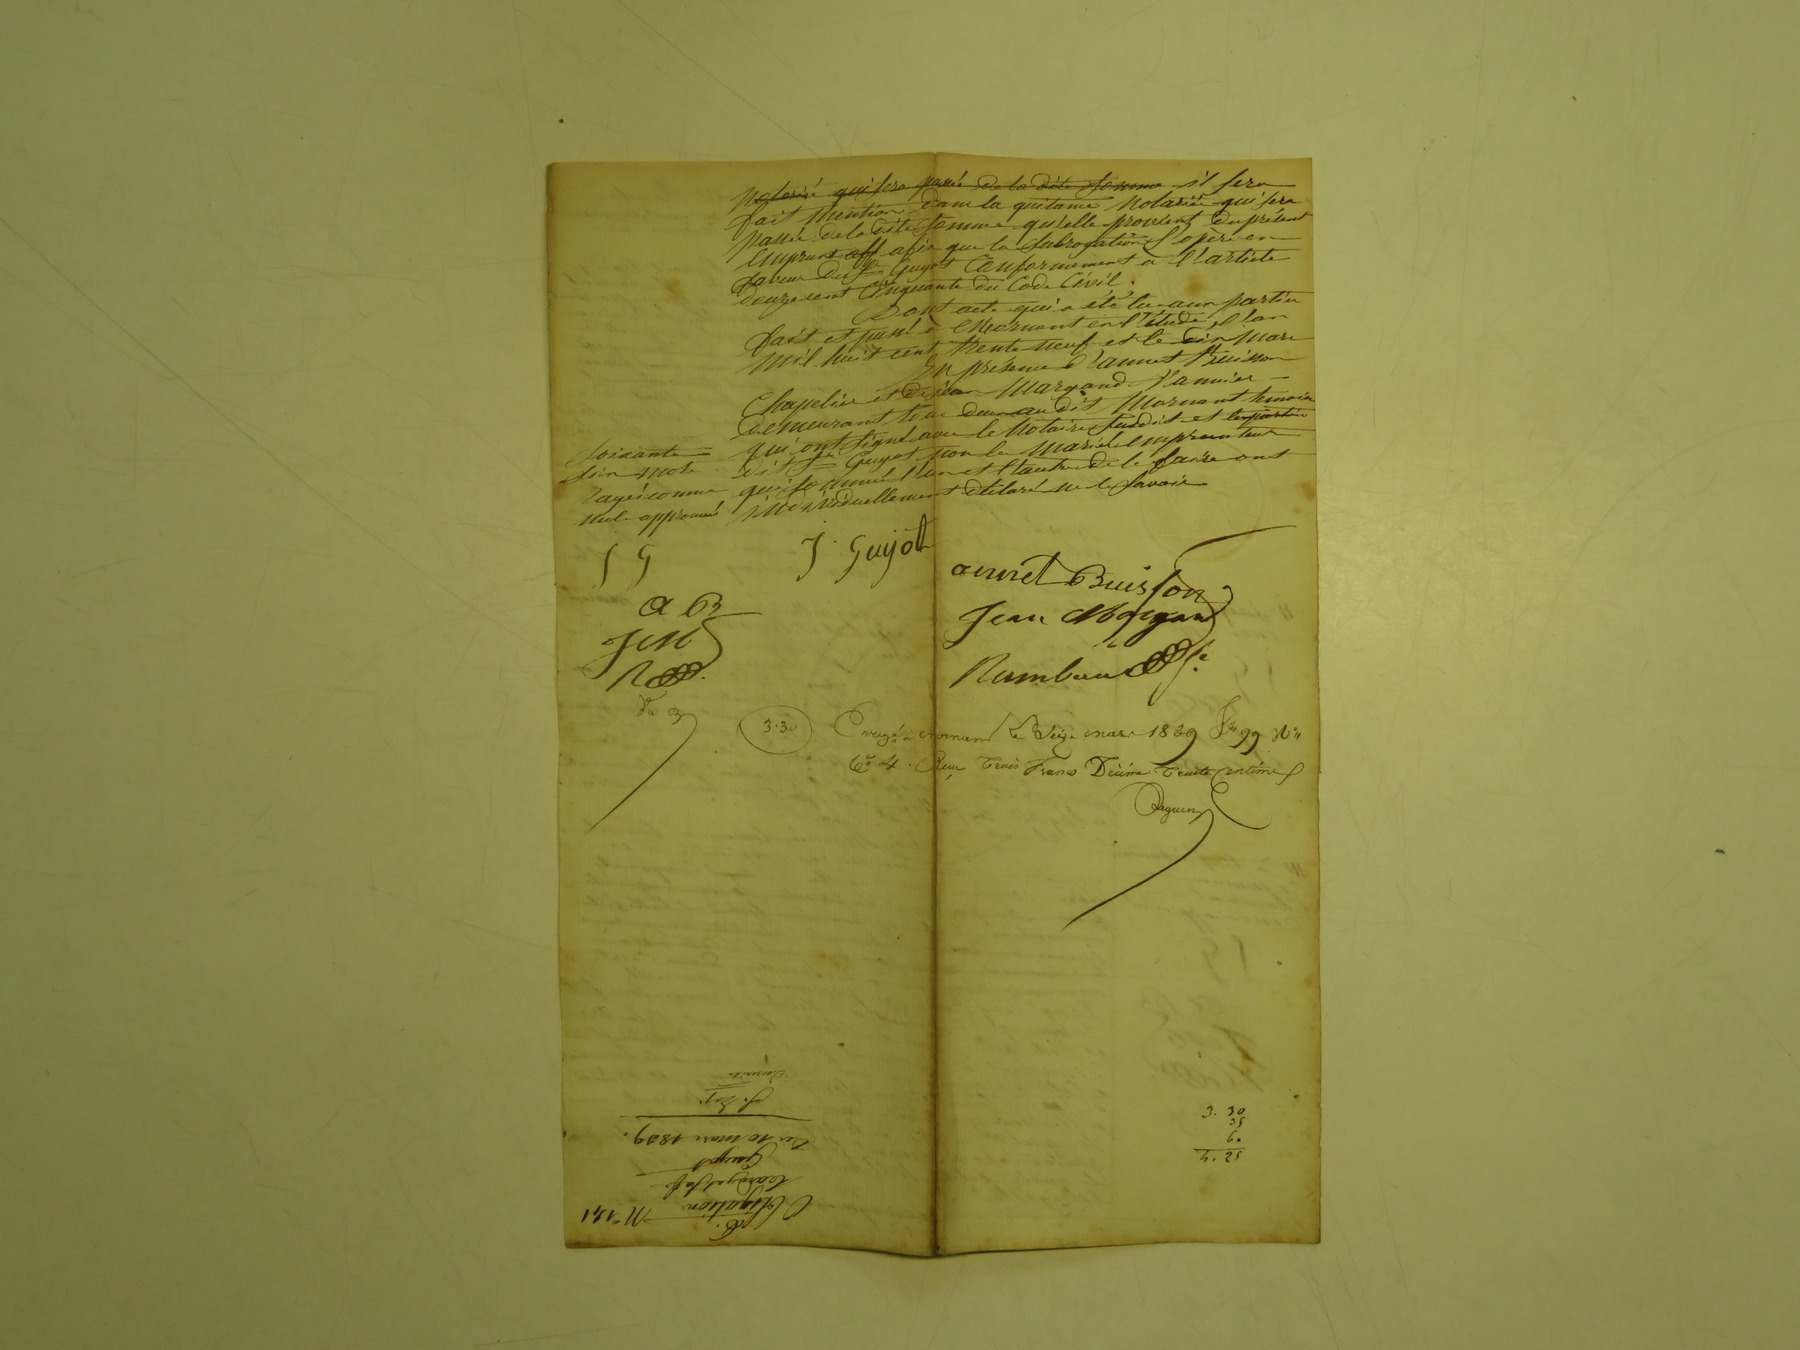 notarié qui sera passée de la dite somme il sera
fait mention dans la quitance notariée qui sera
passée de la dite somme qu'elle provient du présent
emprunt aff afin que la subrogation s'opère en
faveur du Sr Guyot conformement a l'article
douze cent cinquante du Code Civil.
Dont acte qui a été lu aux parties
fait et passé à Mornant en l'étude, l'an
mil huit cent trente neuf et le dix mars
En présence d'annet Buisson
Chapelier et de jean Margand
demeurant tous deux au dit Mornant temoins
qui ont signé avec le Notaire susdit et
dit Sr Guyot non les mariés emprunteurs
qui sommé l'un et l'autre de le faire ont
individuellement déclaré ne le savoir
soixante
six mots
rayés comme
nuls approuvé
J G
J. Guyot
annet Buisson
a B
Jean Margand
J M
Rambaud
Vu
3.30
à Mornant le Seize mars 1839 99
Co 4. Reçu trois Francs Décime trente centimes
3. 30
35
60
4. 25
No 141
Obligation
Guyot
Du 10 mars 1839.